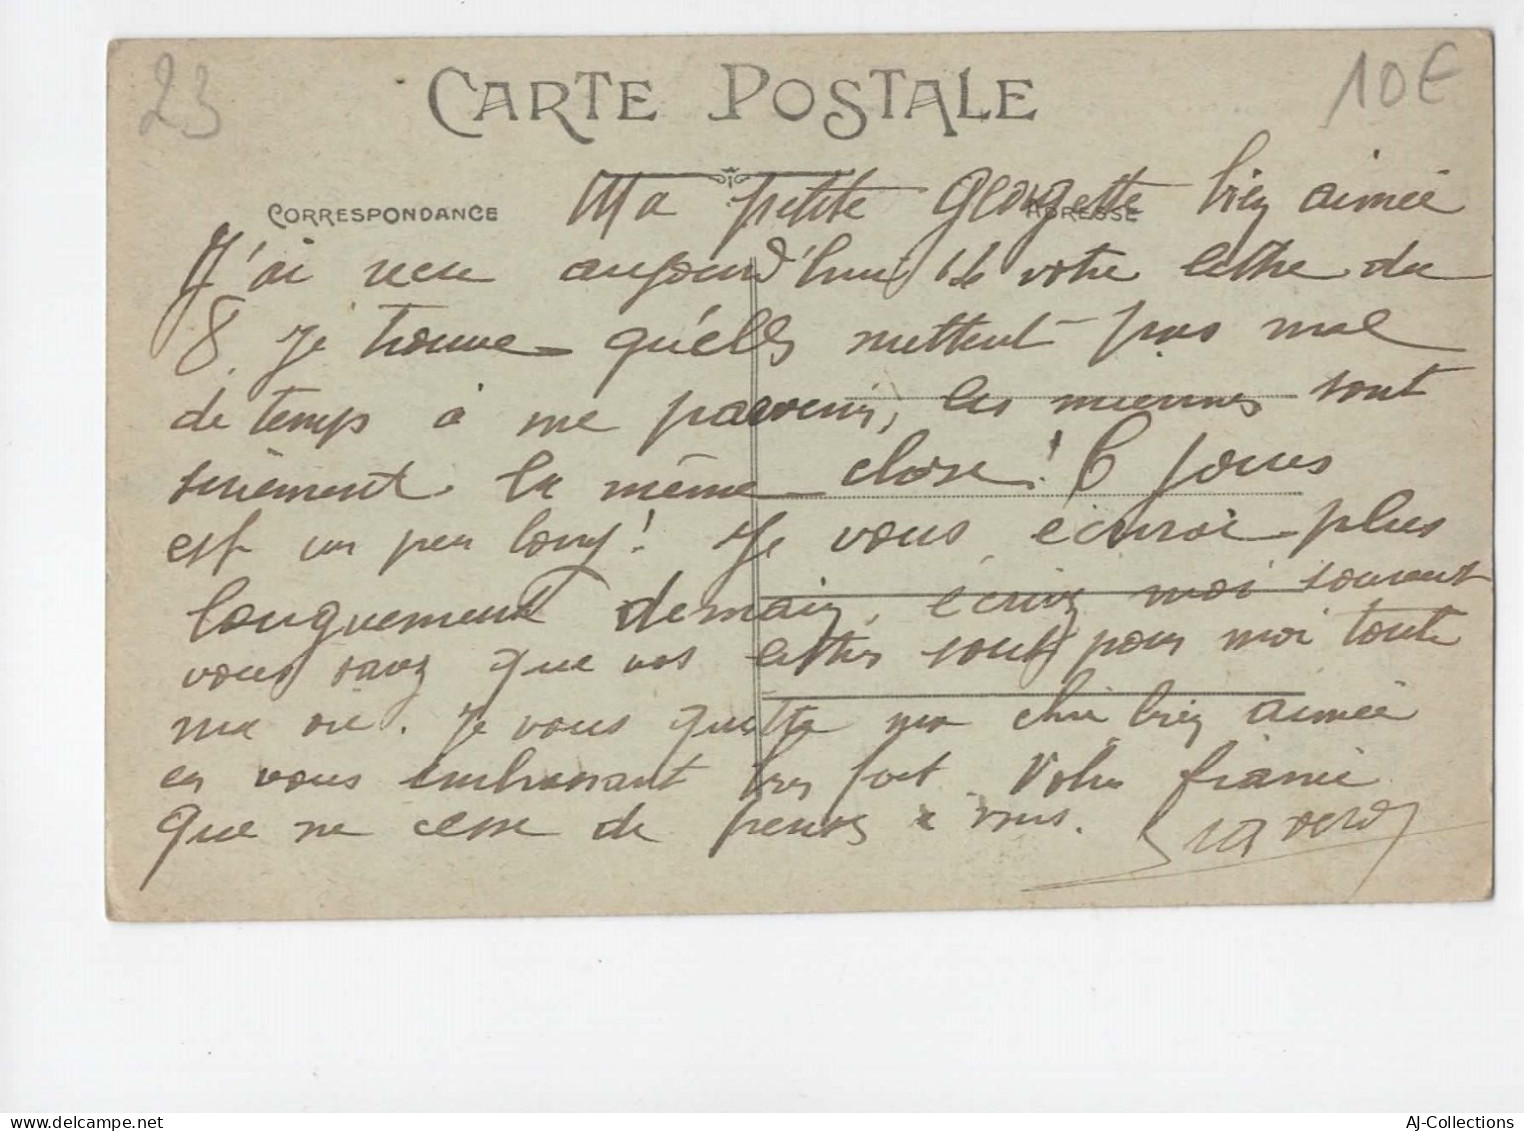 23
10€
CARTE POSTALE
CORRESPONDANCE
ADRESSE
Ma petite Georgette bien aimée
J'ai reçu aujourd'hui 14 votre lettre du
8. Je trouve qu'elles mettent pas mal
de temps à me parvenir, les miennes sont
surement la même chose! 6 jours
est un peu long! Je vous écrirai plus
longuement demain, écrivez moi souvent
vous savez que vos lettres sont pour moi toute
ma vie. Je vous quitte ma chérie bien aimée
en vous embrassant très fort. Votre fiancé
que ne cesse de penser à vous.
AJ-Collections